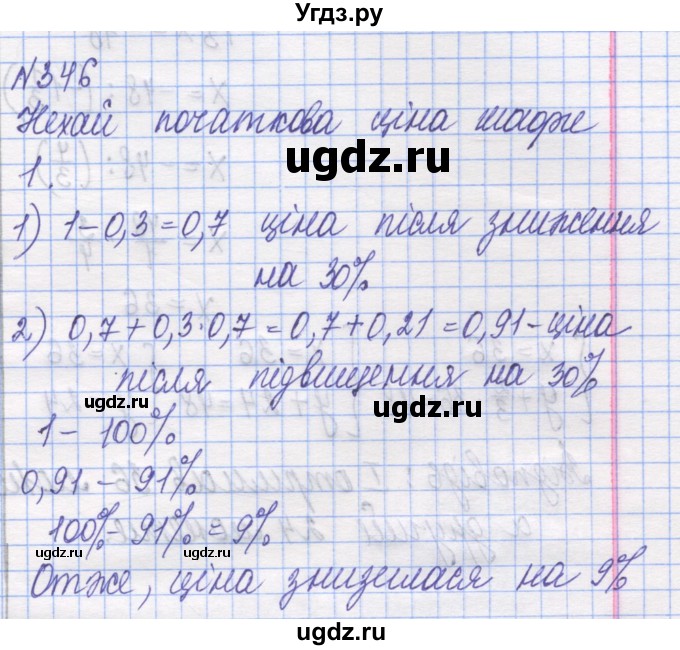 Угдз.ру
№346
Нехай початкова ціна шафи
ugdz.ru
1.
1) 1-0,3=0,7 ціна після зниження
на 30%
2) 0,7+0,3·0,7=0,7+0,21=0,91-ціна
після підвищення на 30%
ugdz.ru
ugdz.ru
1 - 100%
0,91 - 91%
100%-91%=9%
ugdz.ru
ugdz.ru
Отже, ціна знизилася на 9%
ugdz.ru